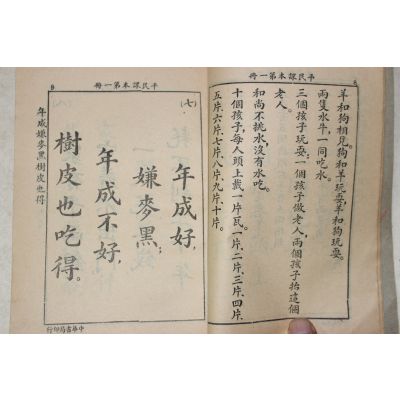 平民課本第一冊
8
羊和狗相見,狗和羊玩耍,羊和狗玩耍。
兩隻水牛,一同吃水。
三個孩子玩耍,一個孩子做老人,兩個孩子抬這個
老人。
和尚不挑水,沒有水吃。
十個孩子,每人頭上戴一片瓦。一片、二片、三片、四片、
五片、六片、七片、八片、九片、十片。
平民課本第一冊
9
(七)
年成好,
嫌麥黑;
年成不好,
樹皮也吃得。
年成嫌麥黑樹皮也得
中華書局印行